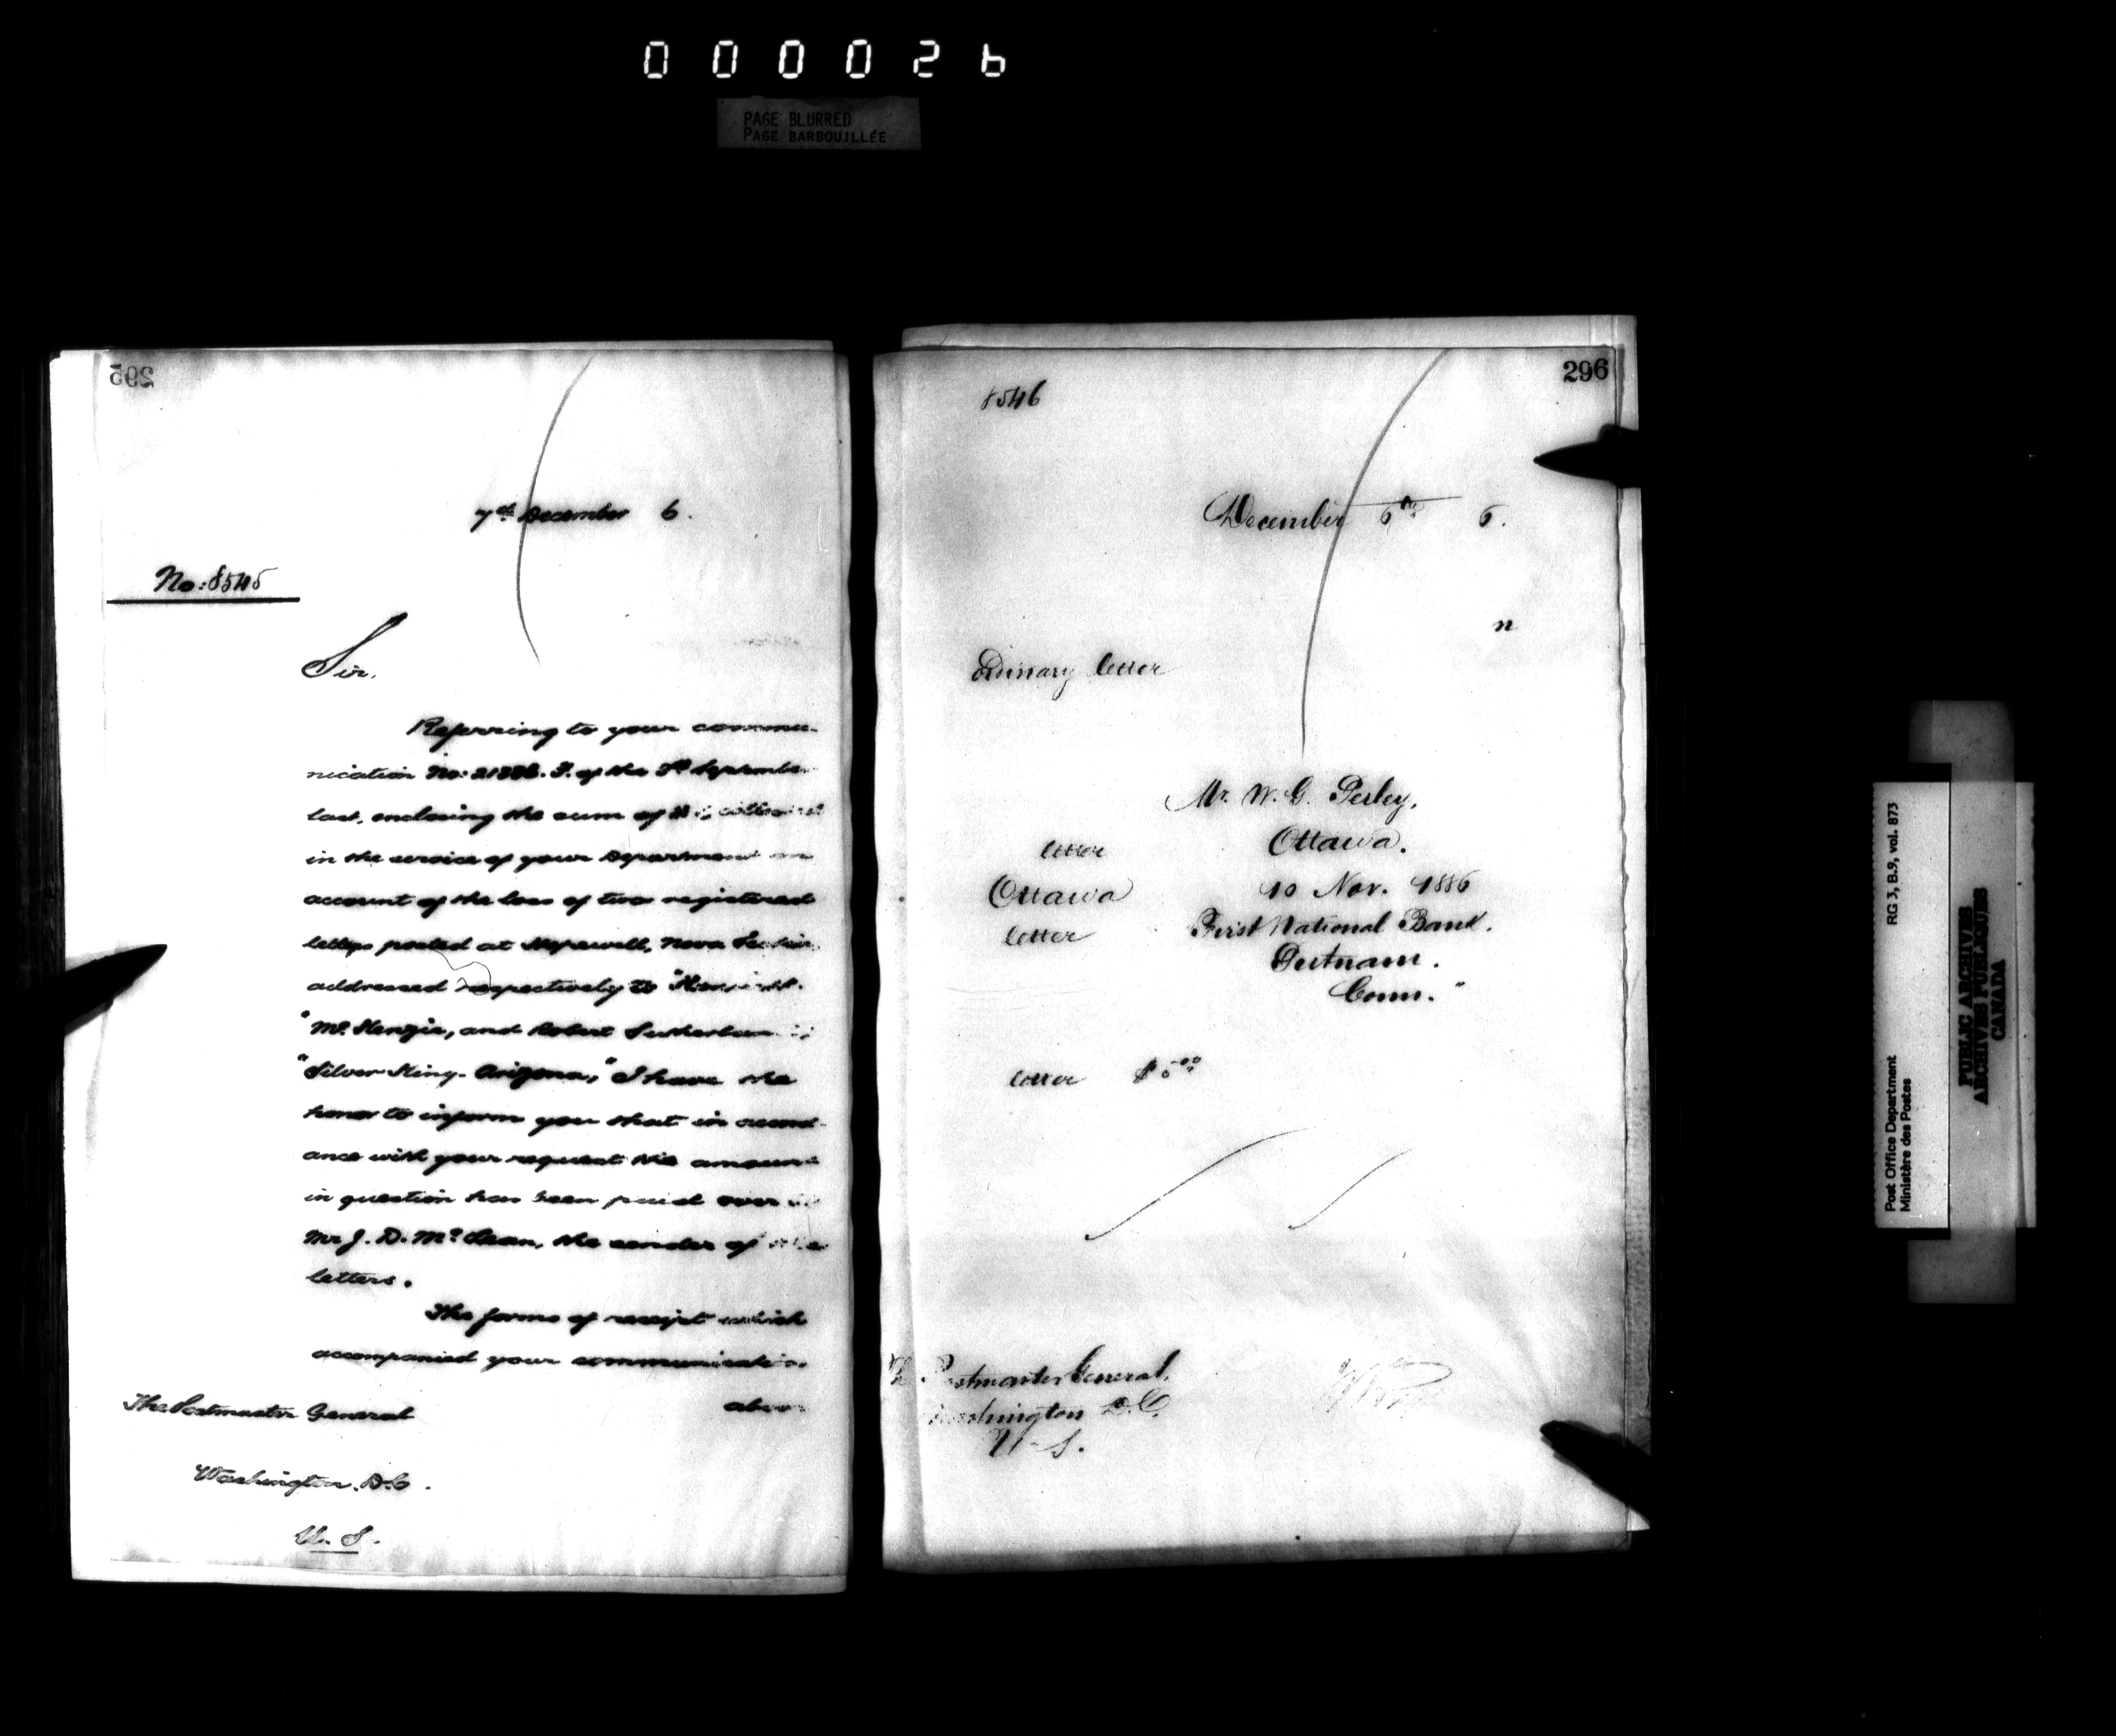 000026
PAGE BLURRED
PAGE BARBOUILLÉE
295
7th December 6.
No: 8545
Sir,
Referring to your commu-
nication No: of the September
last, enclosing the sum of
in the service of your Department on
account of the loss of two registered
letters posted at Hopewell, Nova Scotia,
addressed respectively to
"McKenzie, and Robert Sutherland
"Silver King - Arizona," I have the
honor to inform you that in accord-
ance with your request the amount
in question has been paid over to
Mr J. D. McLean, the sender of the
letters.
The forms of receipt which
accompanied your communication
above
The Postmaster General
Washington. D.C.
U. S.
296
8546
December 6th 6.
n
Ordinary letter
Mr. W. G. Perley,
letter Ottawa.
Ottawa 10 Nov. 1886
letter First National Bank.
Putnam.
Conn."
letter $5.00
The Postmaster General,
Washington D.C.
U.S.
RG 3, B.9, vol. 873
Post Office Department
Ministère des Postes
PUBLIC ARCHIVES
ARCHIVES PUBLIQUES
CANADA